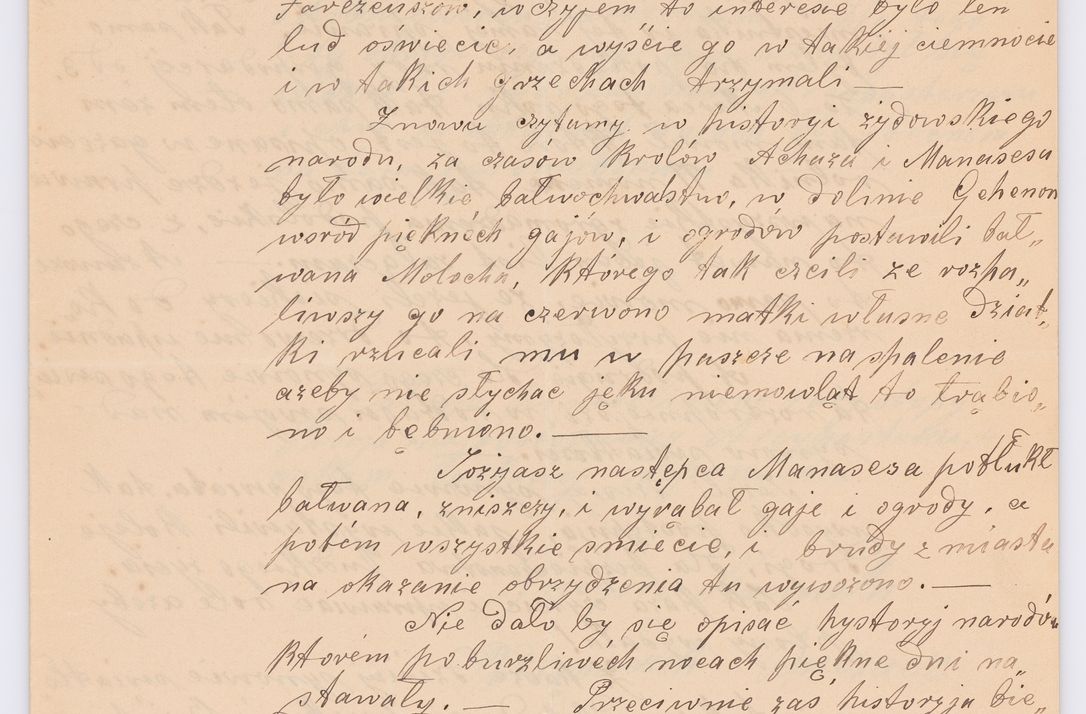 Farezeuszów, w czyjem to interesie było ten
lud oświecic, a wyście go w takiéj ciemnocie
i w takich grzechach trzymali —
Znowu czytamy w historyi żydowskiego
narodu, za czasów Krolów Achaza i Manasesa
było wielkie bałwochwalstwo, w dolinie Gehenon
wsród pięknéch gajów, i ogrodów postawili bał„
wana Molocha, Którego tak czcili ze rozpa„
liwszy go na czerwono matki własne Dziat„
Ki rzucali mu w paszcze na spalenie
ażeby nie słychac jęku niemowląt to trąbio„
no i bębniono. —
Jozyasz następca Manasesa potłukł
bałwana, zniszczy, i wyrąbał gaje i ogrody, a
potém wszystkie smiécie, i brudy z miasta
na okazanie obrzydzenia tu wywozono. —
Nie dało by się opisać hystoryj narodów
Ktorém po burzliwéch nocach piękne dni na„
stawały. — Przeciwnie zaś historyja bie„